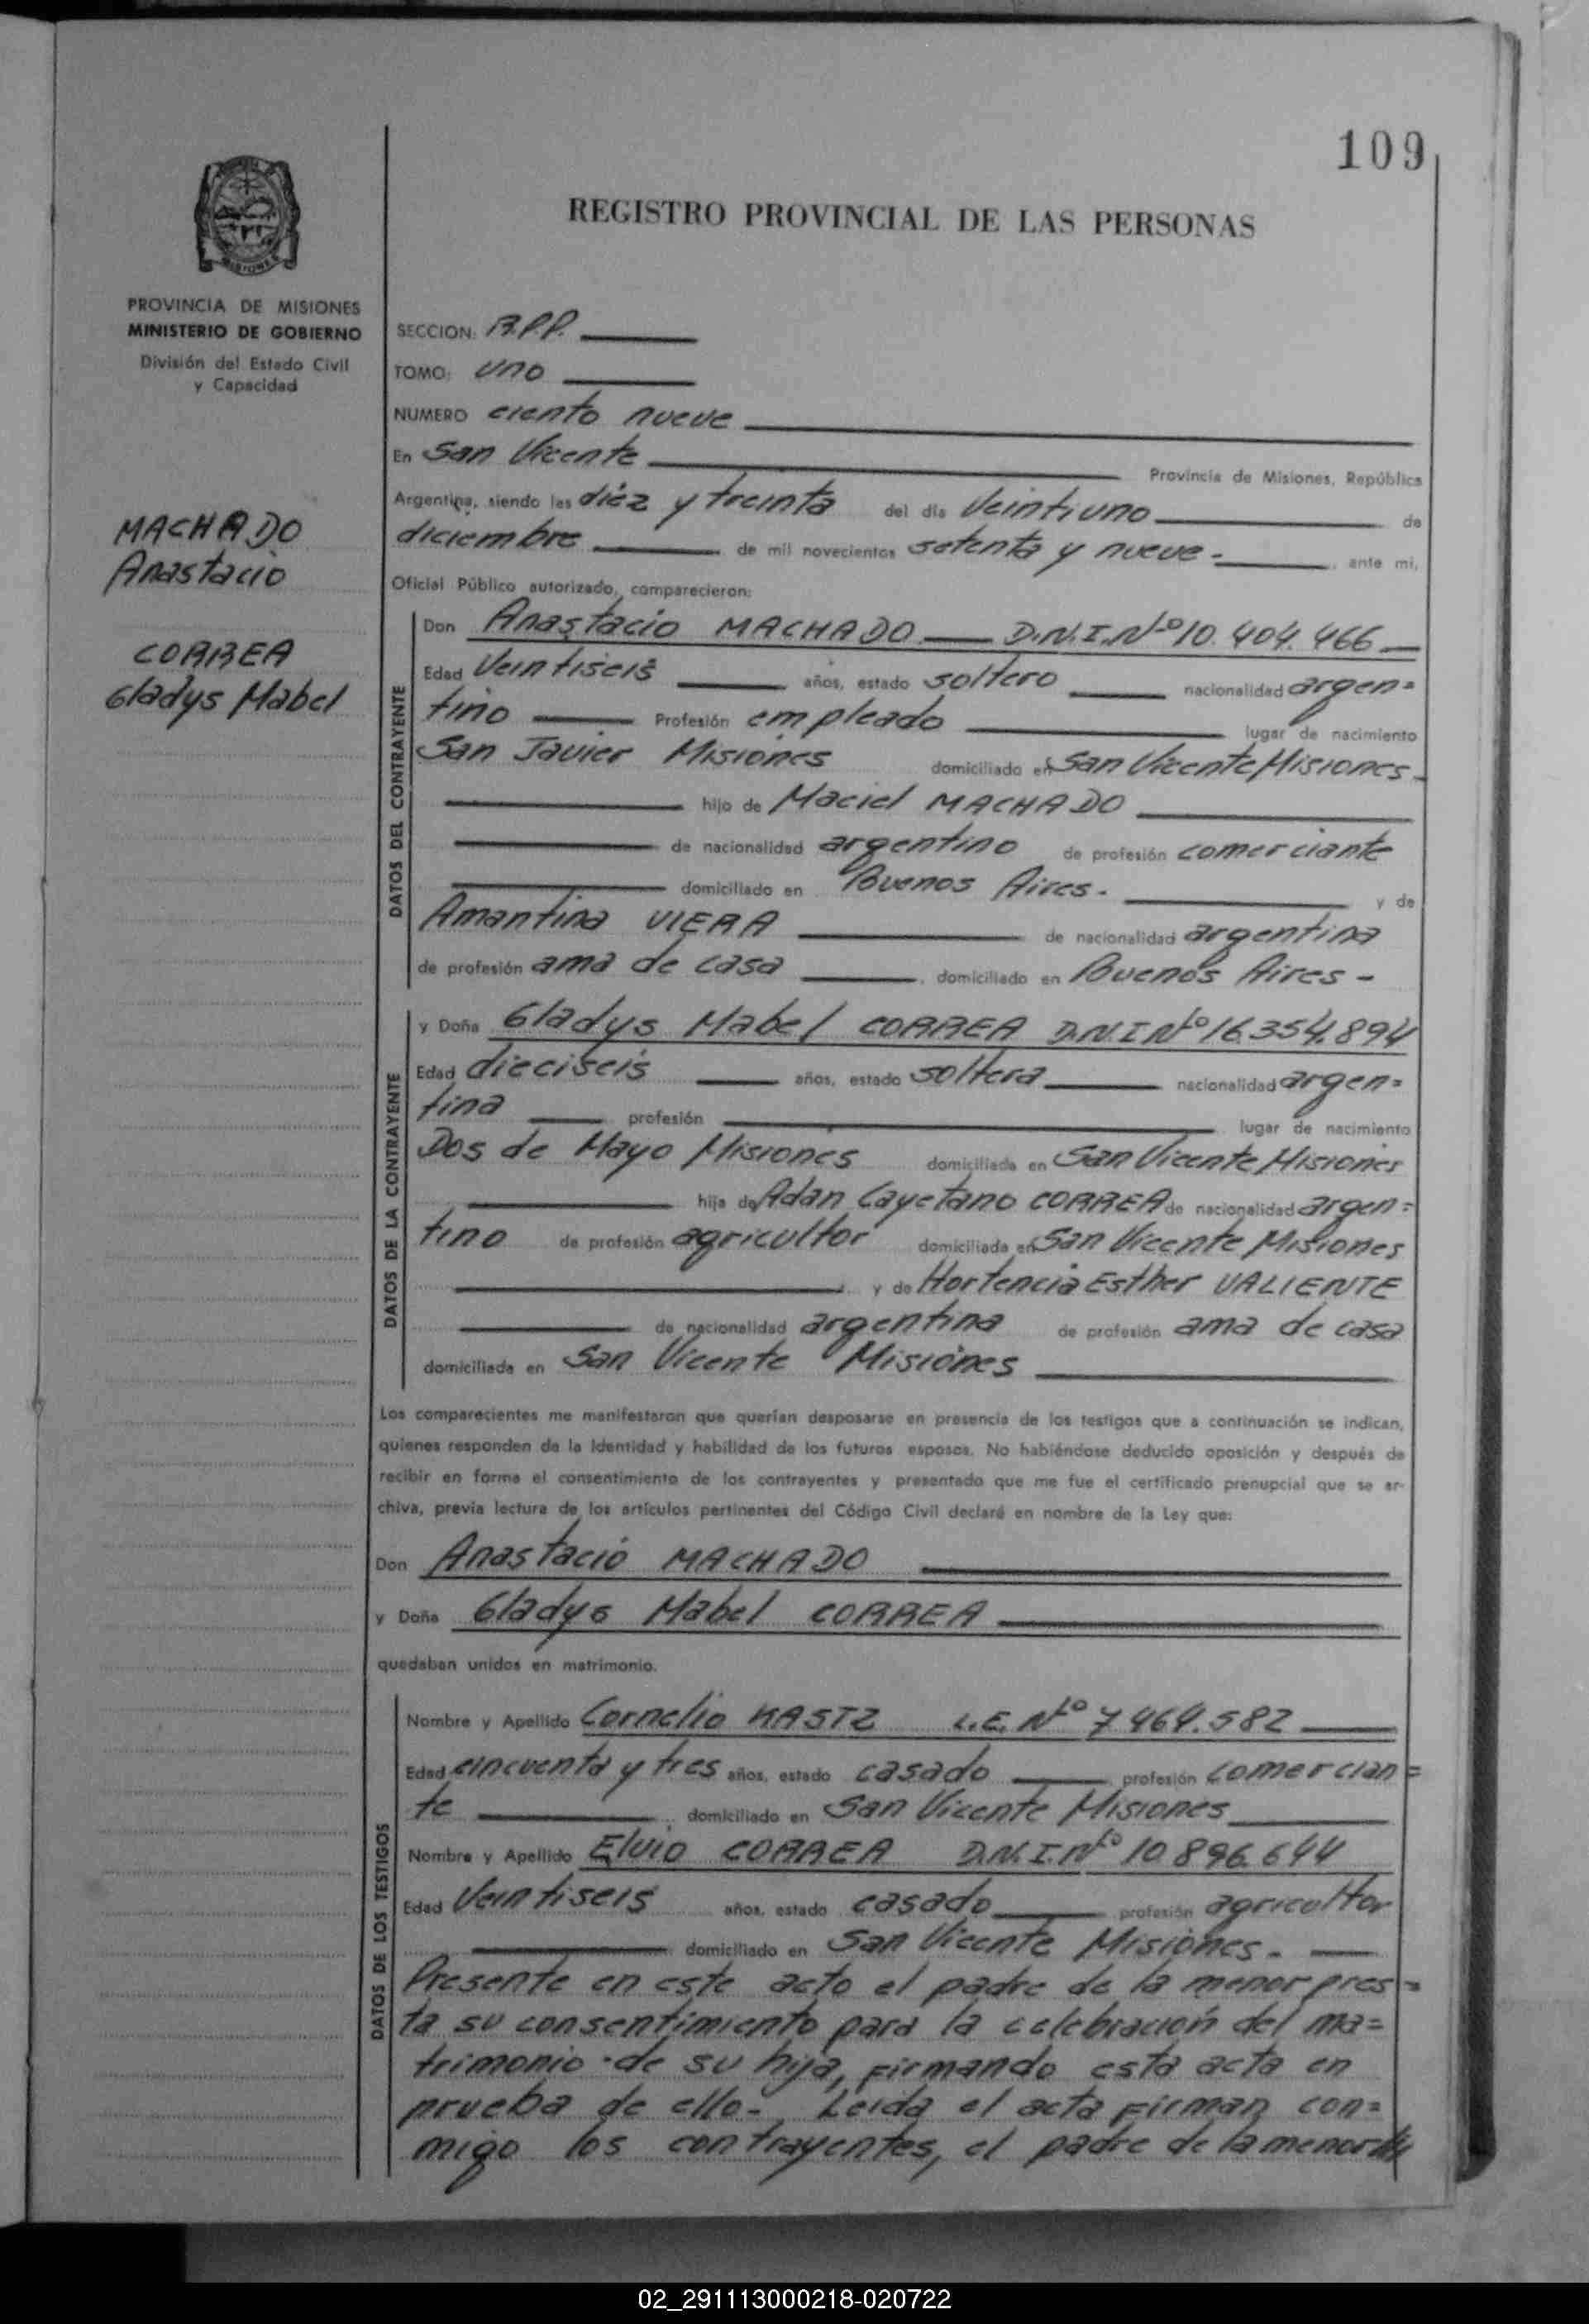 109
REGISTRO PROVINCIAL DE LAS PERSONAS
MISIONES
PROVINCIA DE MISIONES
MINISTERIO DE GOBIERNO
División del Estado Civil
y Capacidad
MACHADO
Anastacio
CORREA
Gladys Mabel
SECCION: R.P.P.
TOMO: uno
NUMERO ciento nueve
En San Vicente Provincia de Misiones, República
Argentina, siendo las diez y treinta del día Veintiuno de
diciembre de mil novecientos setenta y nueve.- , ante mi,
Oficial Público autorizado, comparecieron:
DATOS DEL CONTRAYENTE
Don Anastacio MACHADO D.N.I. Nº 10.404.466
Edad Veintiseis años, estado soltero nacionalidad argen=
tino Profesión empleado lugar de nacimiento
San Javier Misiones domiciliado en San Vicente Misiones
hijo de Maciel MACHADO
de nacionalidad argentino de profesión comerciante
domiciliado en Buenos Aires. y de
Amantina VIERA de nacionalidad argentina
de profesión ama de casa , domiciliado en Buenos Aires -
DATOS DE LA CONTRAYENTE
y Doña Gladys Mabel CORREA D.N.I Nº 16.354.894
Edad dieciseis años, estado soltera nacionalidad argen=
tina profesión lugar de nacimiento
Dos de Mayo Misiones domiciliada en San Vicente Misiones
hija de Adan Cayetano CORREA de nacionalidad argen=
tino de profesión agricultor domiciliado en San Vicente Misiones
y de Hortencia Esther VALIENTE
de nacionalidad argentina de profesión ama de casa
domiciliada en San Vicente Misiones
Los comparecientes me manifestaron que querían desposarse en presencia de los testigos que a continuación se indican,
quienes responden de la identidad y habilidad de los futuros esposos. No habiéndose deducido oposición y después de
recibir en forma el consentimiento de los contrayentes y presentado que me fue el certificado prenupcial que se ar-
chiva, previa lectura de los artículos pertinentes del Código Civil declaré en nombre de la Ley que:
Don Anastacio MACHADO
y Doña Gladys Mabel CORREA
quedaban unidos en matrimonio.
DATOS DE LOS TESTIGOS
Nombre y Apellido Cornelio KASTZ L.E. Nº 7.464.582
Edad cincuenta y tres años, estado casado profesión comercian=
te domiciliado en San Vicente Misiones
Nombre y Apellido Elvio CORREA D.N.I. Nº 10.896.644
Edad Veintiseis años, estado casado profesión agricultor
domiciliado en San Vicente Misiones.-
Presente en este acto el padre de la menor pres=
ta su consentimiento para la celebración del ma=
trimonio de su hija, firmando esta acta en
prueba de ello.- Leida el acta firman con=
migo los contrayentes, el padre de la menor
02_291113000218-020722